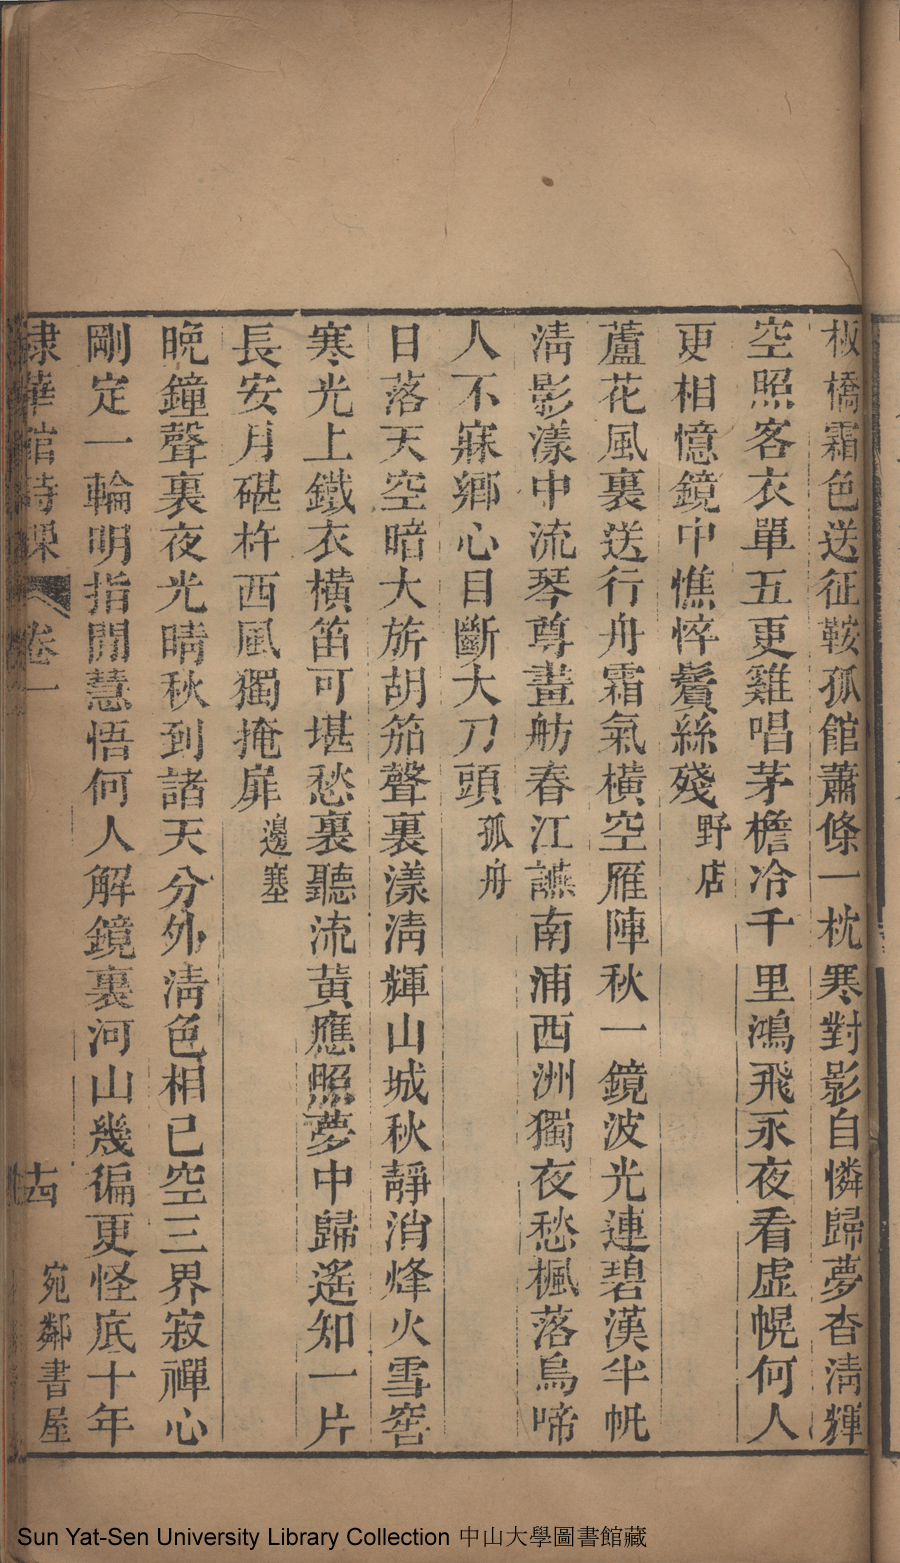 板橋霜色送征鞍孤館蕭條一枕寒對影自憐歸夢杳淸輝
空照客衣單五更雞唱茅檐冷千里鴻飛永夜看虛幌何人
更相憶鏡中憔悴鬢絲殘野店
蘆花風裏送行舟霜氣橫空雁陣秋一鏡波光連碧漢半帆
淸影漾中流琴尊畫舫春江讌南浦西洲獨夜愁楓落烏啼
人不寐鄉心目斷大刀頭孤舟
日落天空暗大旂胡笳聲裏漾淸輝山城秋靜消烽火雪窖
寒光上鐵衣橫笛可堪愁裏聽流黃應照夢中歸遙知一片
長安月碪杵西風獨掩扉邊塞
晚鐘聲裏夜光晴秋到諸天分外淸色相已空三界寂禪心
剛定一輪明指開慧悟何人解鏡裏河山幾徧更怪底十年
棣華館詩課 卷一 十四 宛鄰書屋
Sun Yat-Sen University Library Collection 中山大學圖書館藏